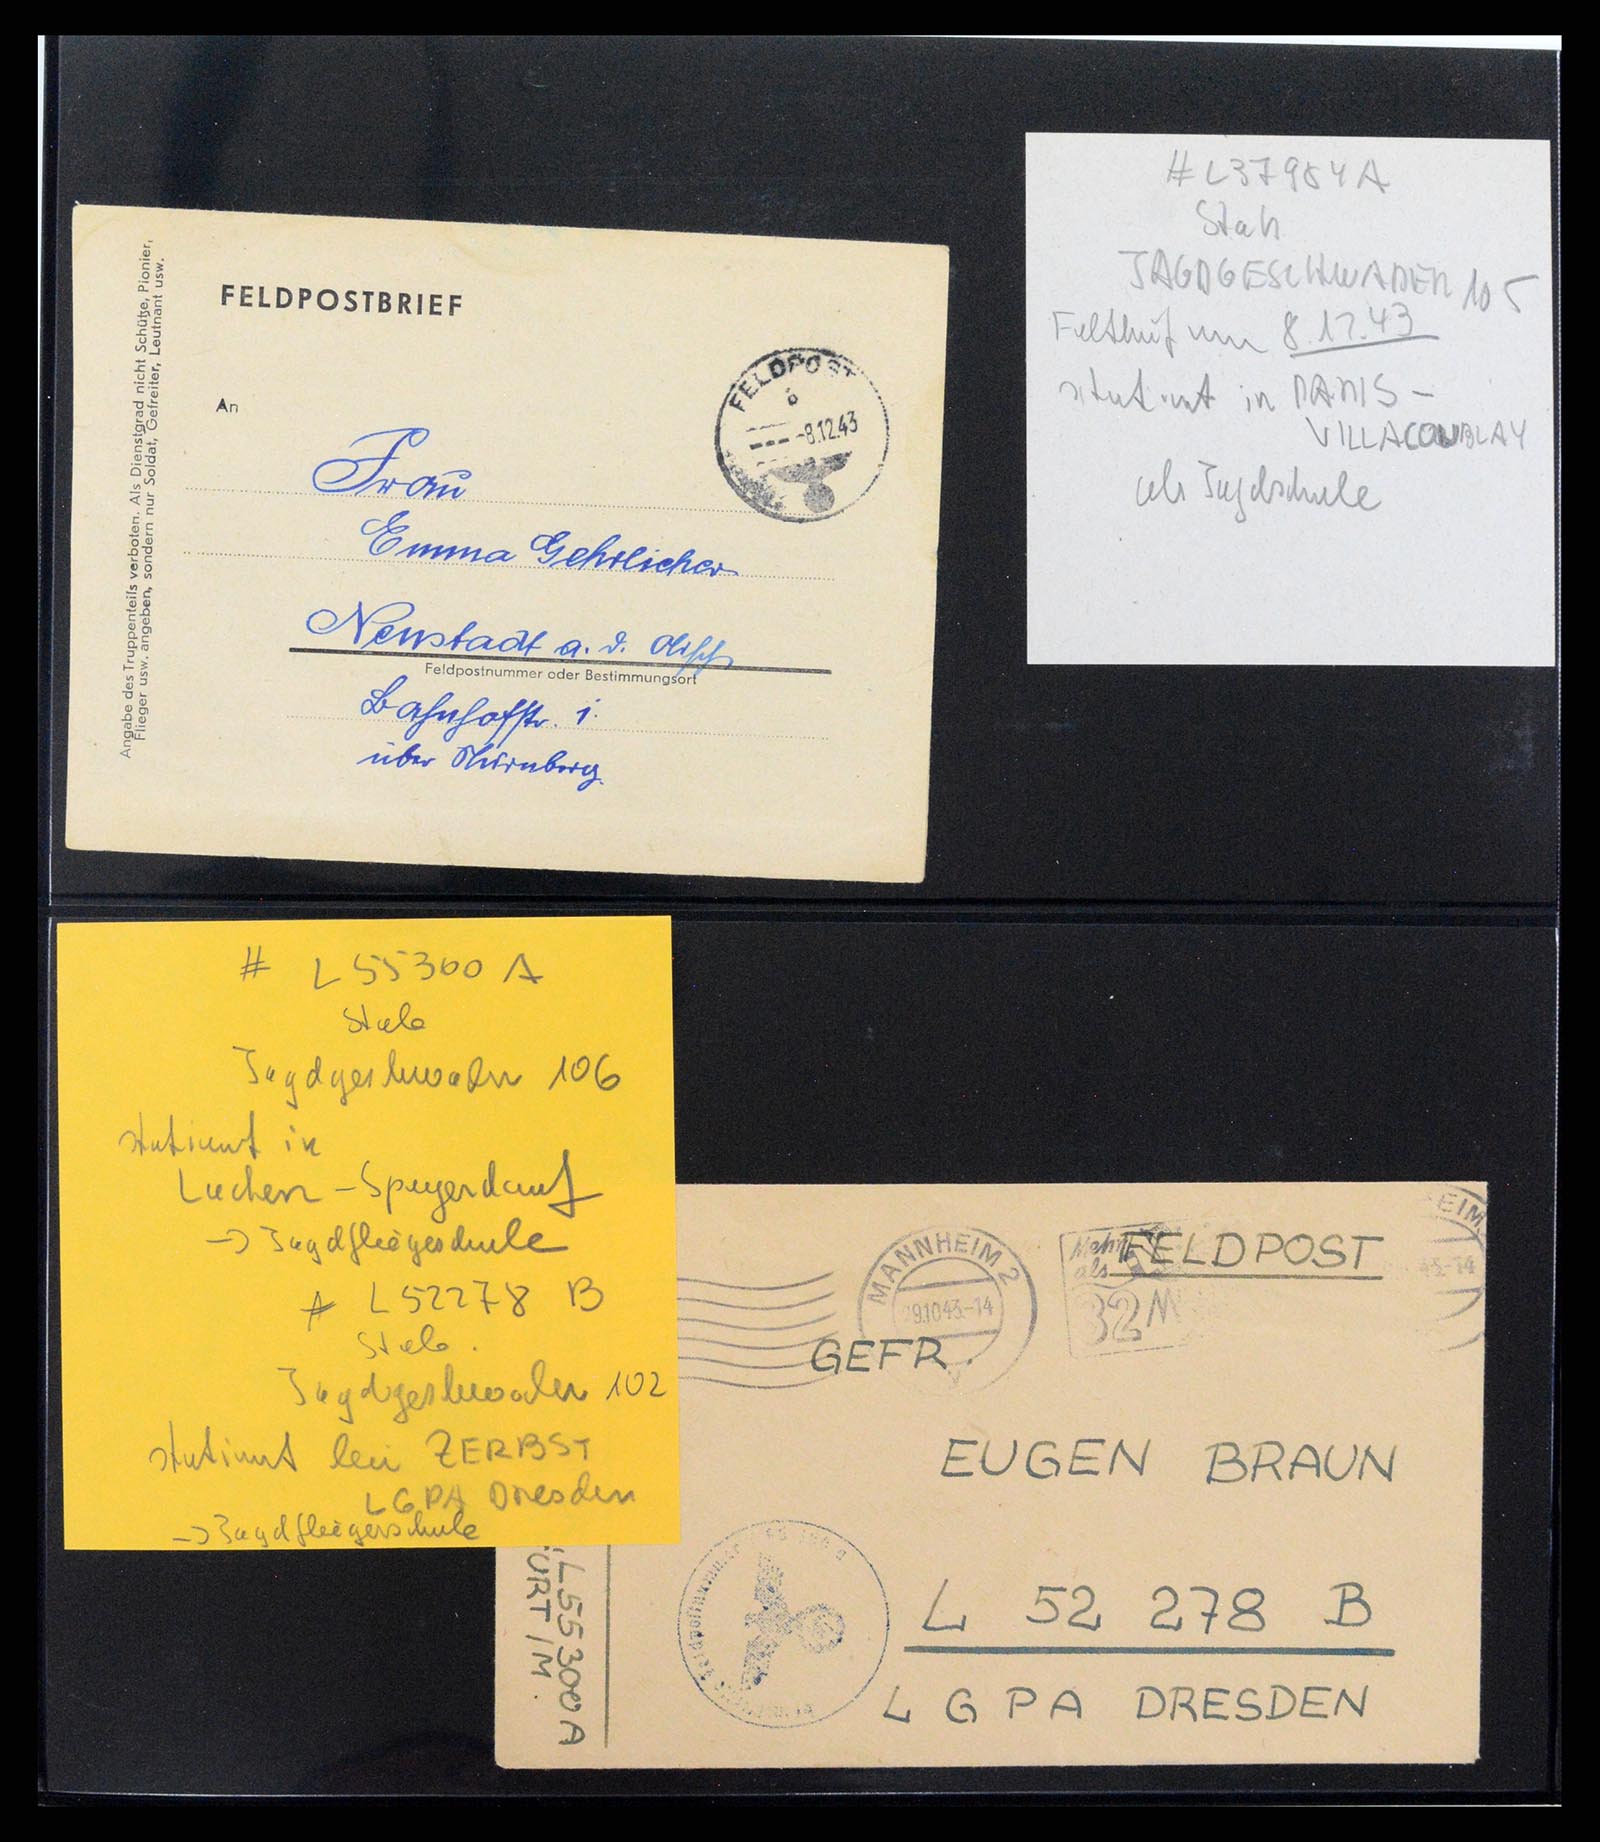 Angabe des Truppenteils verboten. Als Dienstgrad nicht Schütze, Pionier,
Flieger usw. angeben, sondern nur Soldat, Gefreiter, Leutnant usw.
FELDPOSTBRIEF
FELDPOST
-8.12.43
An
Frau
Emma Gehrlicher
Neustadt a. d. Aisch
Feldpostnummer oder Bestimmungsort
Bahnhofstr. 1.
über Nürnberg.
# L37984A
Stab
JAGDGESCHWADER 105
8.12.43
stationiert in PARIS -
VILLACOUBLAY
als Jagdschule
# L 55300 A
Stab
Jagdgeschwader 106
stationiert in
Lachen - Speyerdorf
-> Jagdfliegerschule
# L 52278 B
Stab.
Jagdgeschwader 102
stationiert bei ZERBST
LGPA Dresden
-> Jagdfliegerschule
MANNHEIM 2
29.10.43-14
Mehr
als
32 M
EIM
43-14
FELDPOST
GEFR.
EUGEN BRAUN
L 52 278 B
L G P A DRESDEN
L 55 300 A
FURT / M.